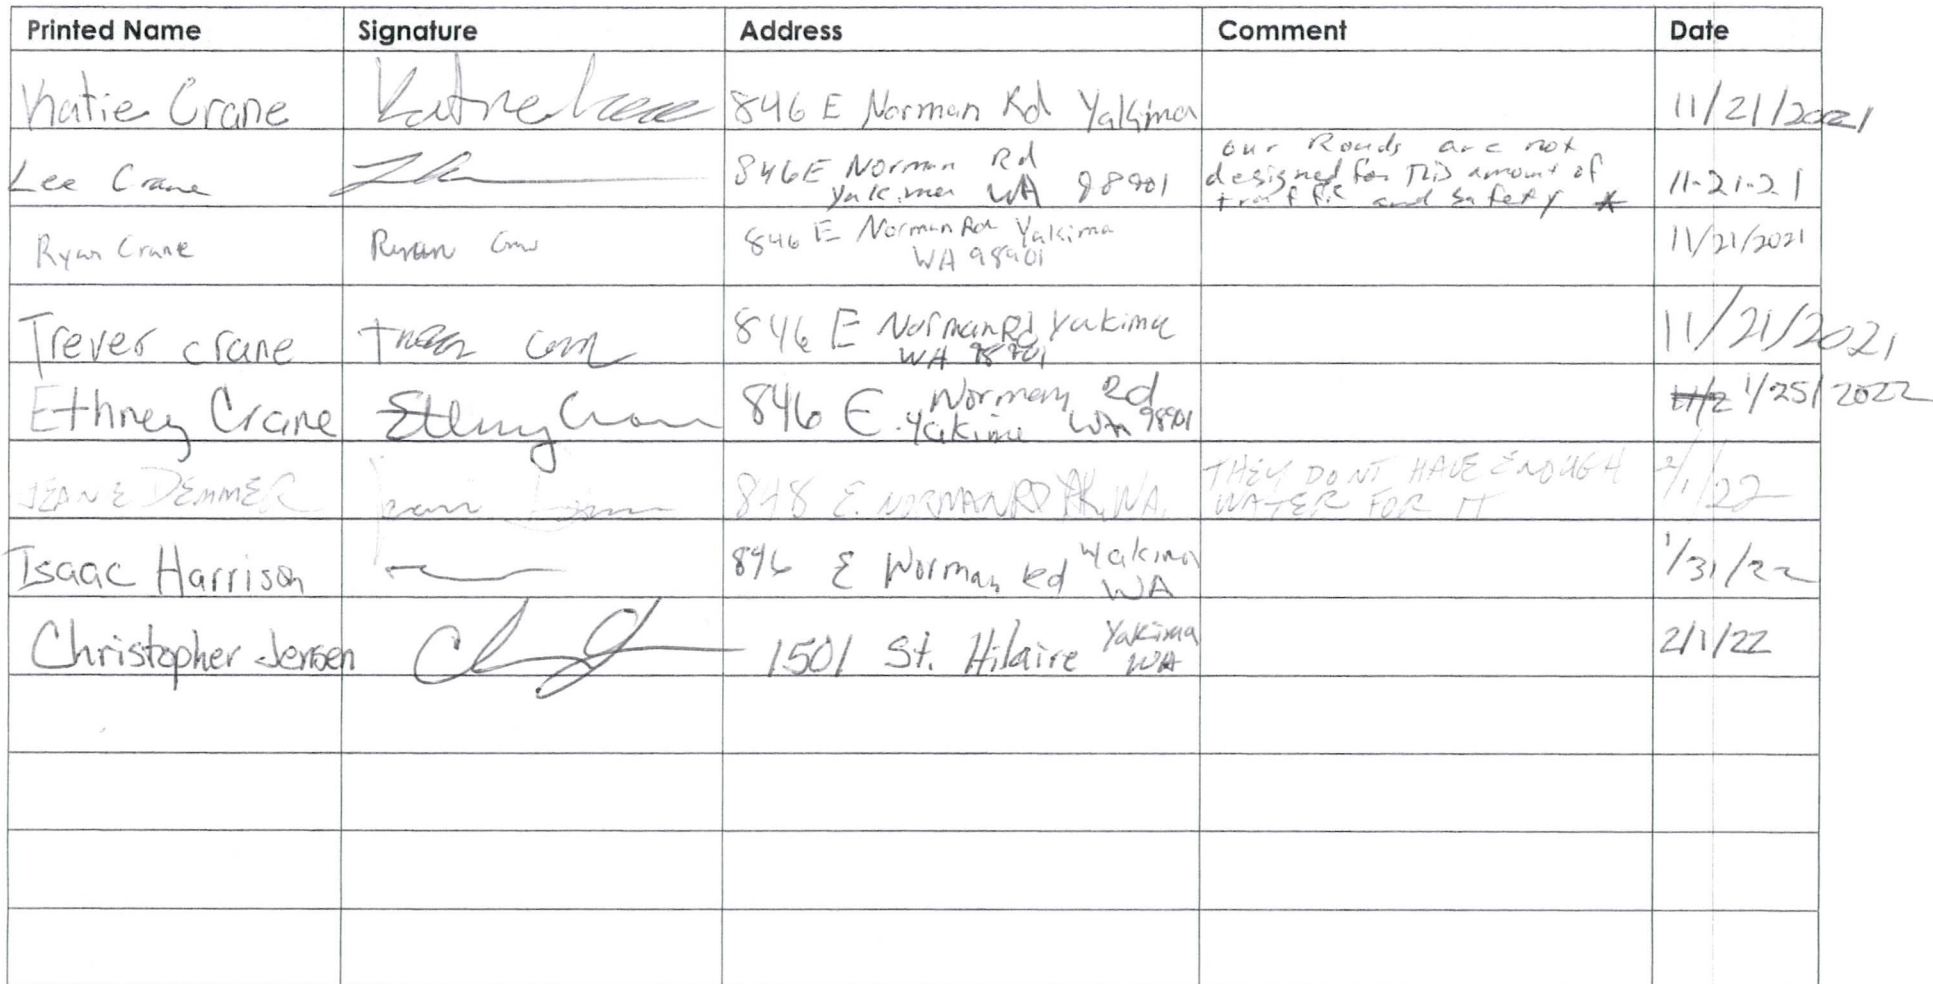 Printed Name Signature Address Comment Date
Katie Crane 846 E Norman Rd Yakima 11/21/2021
Lee Crane 846 E Norman Rd
Yakima WA 98901
our Roads are not
designed for This amount of
traffic and safety * 11-21-21
Ryan Crane Ryan 846 E Norman Rd Yakima
WA 98901 11/21/2021
Trever crane 846 E Norman Rd Yakima
WA 98901 11/21/2021
Ethney Crane 846 E. Norman Rd
Yakima WA 98901 1/25/2022
JEANE DEMMER 848 E. NORMAN RD YAK, WA.
THEY DONT HAVE ENOUGH
WATER FOR IT 2/1/22
Isaac Harrison 846 E Norman Rd Yakima
WA 1/31/22
Christopher Jensen 1501 St. Hilaire Yakima
WA 2/1/22